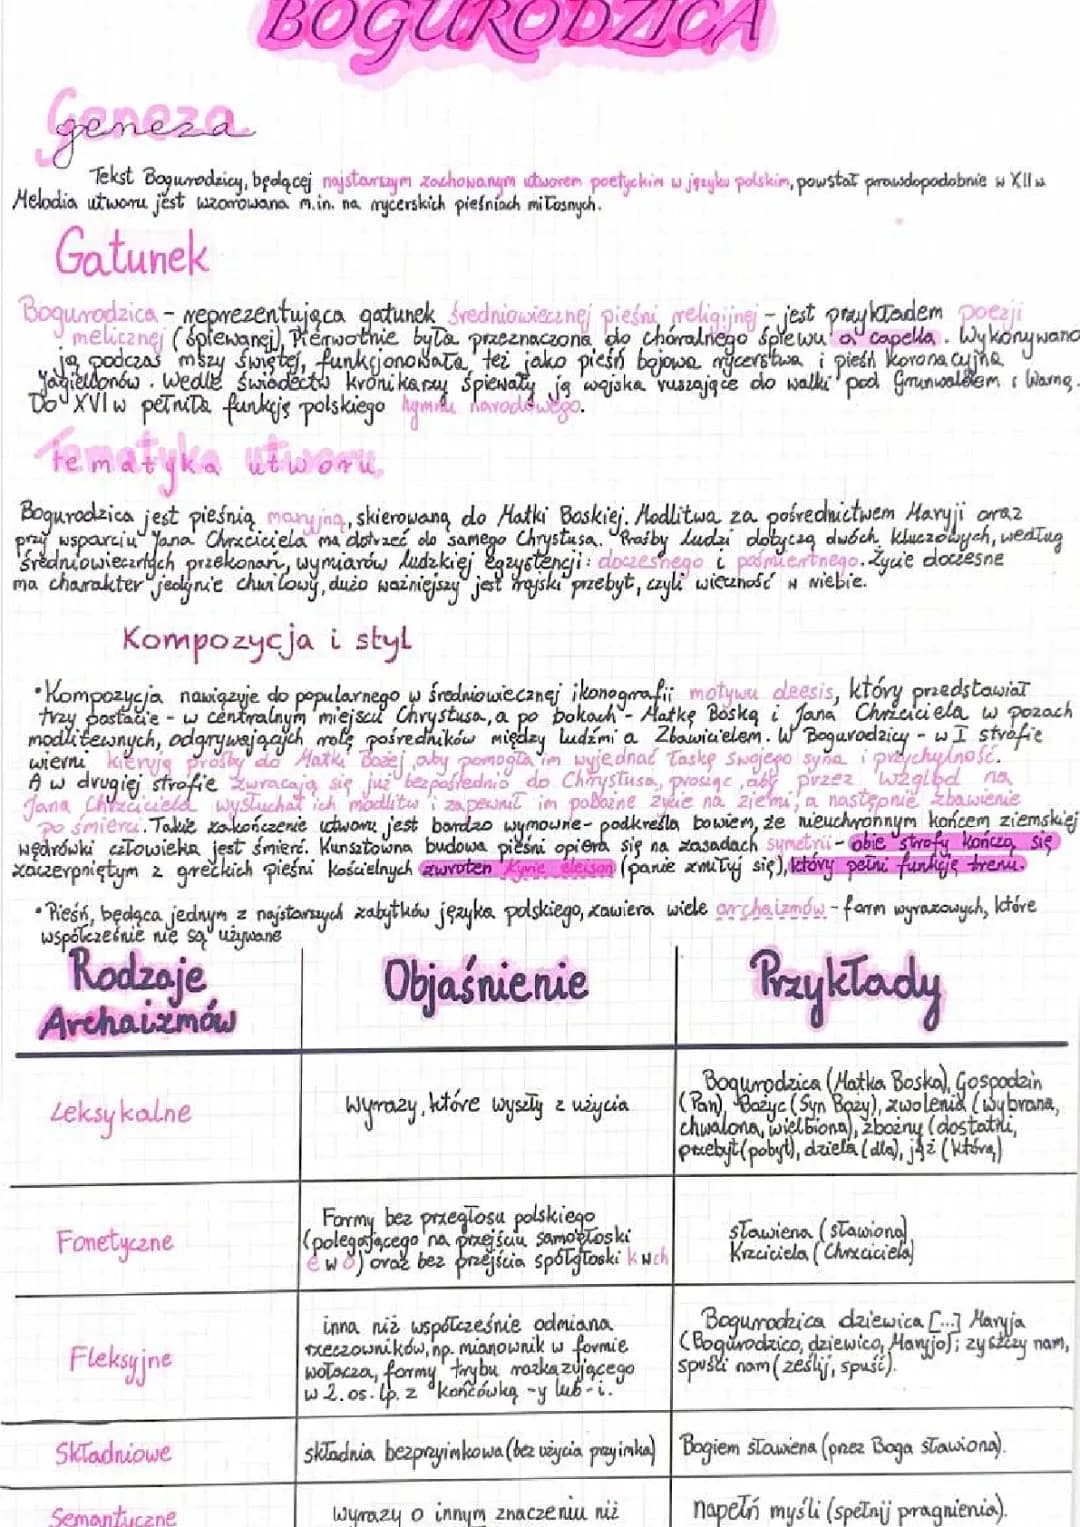 BOGURODZICA
Geneza
geneza
Tekst Bogurodzicy, będącej najstarszym zachowanym utworem poetyckim w języku polskim, powstał prawdopodobnie w XII w
Melodia utworu jest wzorowana m.in. na rycerskich pieśniach miłosnych.
Gatunek
Bogurodzica - reprezentująca gatunek średniowiecznej pieśni religijnej - jest przykładem poezji
melicznej (śpiewanej). Pierwotnie była przeznaczona do chóralnego śpiewu a capella. Wykonywano
ją podczas mszy świętej, funkcjonowała też jako pieśń bojowa rycerstwa i pieśń koronacyjna
Jagiellonów. Wedle świadectw kronikarzy śpiewały ją wojska ruszające do walki pod Grunwaldem i Warną.
Do XVI w pełniła funkcję polskiego hymnu narodowego.
Tematyka utworu
Bogurodzica jest pieśnią maryjną, skierowaną do Matki Boskiej. Modlitwa za pośrednictwem Maryji oraz
przy wsparciu Jana Chrzciciela ma dotrzeć do samego Chrystusa. Prośby ludzi dotyczą dwóch kluczowych, według
średniowiecznych przekonań, wymiarów ludzkiej egzystencji: doczesnego i pośmiertnego. Życie doczesne
ma charakter jedynie chwilowy, dużo ważniejszy jest rajski przebyt, czyli wieczność w niebie.
Kompozycja i styl
•Kompozycja nawiązuje do popularnego w średniowiecznej ikonografii motywu deesis, który przedstawiał
trzy postacie - w centralnym miejscu Chrystusa, a po bokach - Matkę Boską i Jana Chrzciciela w pozach
modlitewnych, odgrywających rolę pośredników między ludźmi a Zbawicielem. W Bogurodzicy - w I strofie
wierni kierują prośby do Matki Bożej, aby pomogła im wyjednać łaskę swojego syna i przychylność.
A w drugiej strofie zwracają się już bezpośrednio do Chrystusa, prosząc, aby przez wzgląd na
Jana Chrzciciela wysłuchał ich modlitw i zapewnił im pobożne życie na ziemi, a następnie zbawienie
po śmierci. Takie zakończenie utworu jest bardzo wymowne - podkreśla bowiem, że nieuchronnym końcem ziemskiej
wędrówki człowieka jest śmierć. Kunsztowna budowa pieśni opiera się na zasadach symetrii - obie strofy kończą się
zaczerpniętym z greckich pieśni kościelnych zwroten Kyrie eleison (panie zmiłuj się), który pełni funkcję trenu.
•Pieśń, będąca jednym z najstarszych zabytków języka polskiego, zawiera wiele archaizmów - form wyrazowych, które
współcześnie nie są używane
Rodzaje Archaizmów
Objaśnienie
Przykłady
Leksykalne
Wyrazy, które wyszły z użycia
Bogurodzica (Matka Boska), Gospodzin
(Pan), Bożyc (Syn Boży), zwolena (wybrana,
chwalona, wielbiona), zbożny (dostatni,
przebyt (pobyt), dziela (dla), jąż (którą)
Fonetyczne
Formy bez przegłosu polskiego
(polegającego na przejściu samogłoski
e w o) oraz bez przejścia spółgłoski k w ch
sławiena (sławiona)
Krzciciela (Chrzciciela)
Fleksyjne
inna niż współcześnie odmiana
rzeczowników, np. mianownik w formie
wołacza, formy trybu rozkazującego
w 2. os. lp. z końcówką -y lub -i.
Bogurodzica dziewica [...] Maryja
(Bogurodzico, dziewico, Maryjo); zyszczy nam,
spuści nam (ześlij, spuść).
Składniowe
składnia bezprzyimkowa (bez użycia przyimka)
Bogiem sławiena (przez Boga sławiona).
Semantyczne
Wyrazy o innym znaczeniu niż
napełń myśli (spełnij pragnienia).